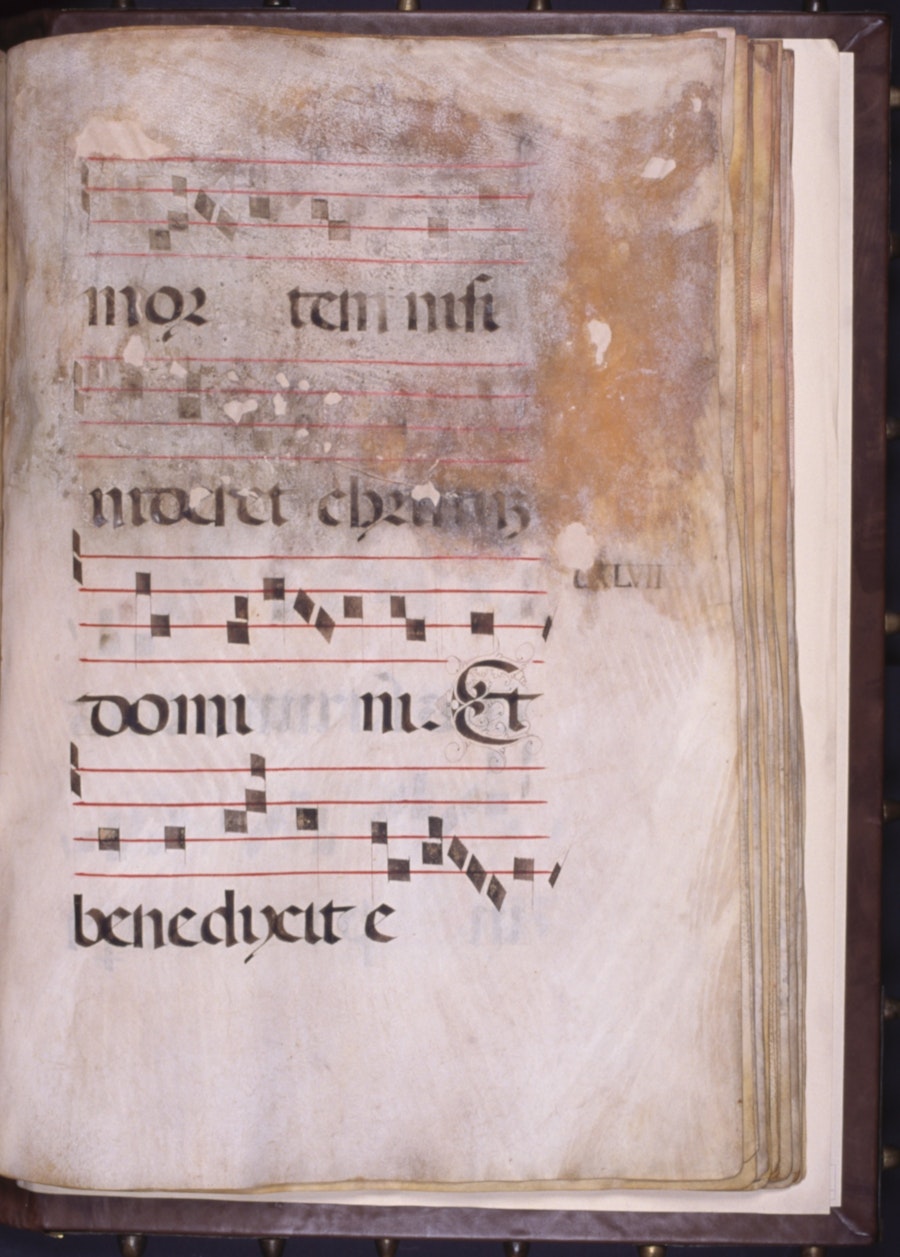 mor tem nisi
uideret christum
CXLVII
domi ni. Et
benedixit e